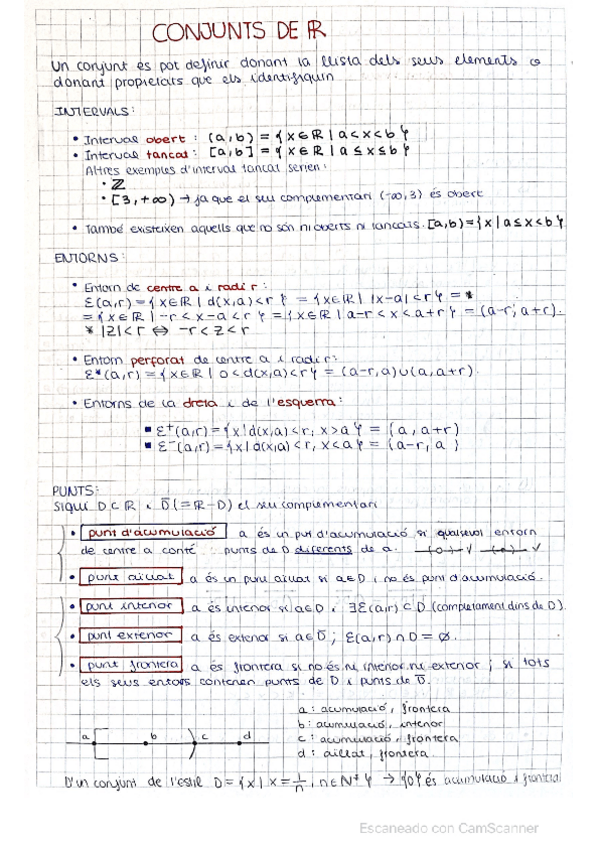 CONJUNTS DE ℝ
Un conjunt es pot definir donant la llista dels seus elements o
donant propietats que els identifiquin
INTERVALS:
• Interval obert : (a,b) = {x∈ℝ | a<x<b}
• Interval tancat: [a,b] = {x∈ℝ | a≤x≤b}
Altres exemples d'interval tancat serien:
• ℤ
• [3,+∞) → ja que el seu complementari (-∞,3) és obert
• També existeixen aquells que no són ni oberts ni tancats. [a,b)={x|a≤x<b}
ENTORNS:
• Entorn de centre a i radi r:
Ɛ(a,r)={x∈ℝ | d(x,a)<r} = {x∈ℝ | |x-a|<r} = *
= {x∈ℝ | -r<x-a<r} = {x∈ℝ | a-r<x<a+r} = (a-r, a+r).
* |z|<r ⇔ -r<z<r
• Entorn perforat de centre a i radi r:
Ɛ*(a,r)={x∈ℝ | 0<d(x,a)<r} = (a-r,a)∪(a,a+r).
• Entorns de la dreta i de l'esquerra:
▪ Ɛ⁺(a,r)={x|d(x,a)<r, x>a} = (a, a+r)
▪ Ɛ⁻(a,r)={x|d(x,a)<r, x<a} = (a-r, a)
PUNTS:
Sigui D⊂ℝ i D̄(=ℝ-D) el seu complementari
• punt d'acumulació a és un punt d'acumulació si qualsevol entorn
de centre a conté punts de D diferents de a.
• punt aïllat a és un punt aïllat si a∈D i no és punt d'acumulació.
• punt interior a és interior si a∈D i ∃Ɛ(a,r)⊂D (completament dins de D).
• punt exterior a és exterior si a∈D̄ ; Ɛ(a,r)∩D=∅.
• punt frontera a és frontera si no és ni interior ni exterior ; si tots
els seus entorns contenen punts de D i punts de D̄.
a b c d
a: acumulació, frontera
b: acumulació, interior
c: acumulació, frontera
d: aïllat, frontera.
D'un conjunt de l'estil D={x|x=1/n, n∈ℕ⁺} → {0} és acumulació i frontera
Escaneado con CamScanner